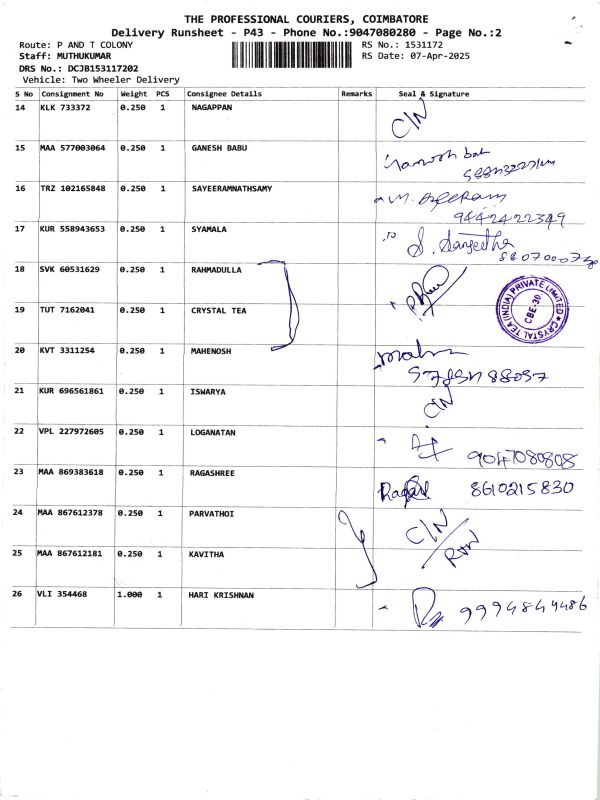 THE PROFESSIONAL COURIERS, COIMBATORE
Delivery Runsheet - P43 - Phone No.:9047080280 - Page No.:2
Route: P AND T COLONY
Staff: MUTHUKUMAR
DRS No.: DCJB153117202
Vehicle: Two Wheeler Delivery
RS No.: 1531172
RS Date: 07-Apr-2025
S No Consignment No Weight PCS Consignee Details Remarks Seal & Signature
14 KLK 733372 0.250 1 NAGAPPAN C/N
15 MAA 577003064 0.250 1 GANESH BABU
16 TRZ 102165848 0.250 1 SAYEERAMNATHSAMY
9442422349
17 KUR 558943653 0.250 1 SYAMALA S. Sangeetha
18 SVK 60531629 0.250 1 RAHMADULLA
19 TUT 7162041 0.250 1 CRYSTAL TEA
CRYSTAL TEA (INDIA) PRIVATE LIMITED
CBE-30
20 KVT 3311254 0.250 1 MAHENOSH
21 KUR 696561861 0.250 1 ISWARYA C/N
22 VPL 227972605 0.250 1 LOGANATAN
9047080808
23 MAA 869383618 0.250 1 RAGASHREE 8610215830
24 MAA 867612378 0.250 1 PARVATHOI C/N
25 MAA 867612181 0.250 1 KAVITHA
26 VLI 354468 1.000 1 HARI KRISHNAN 9994844486